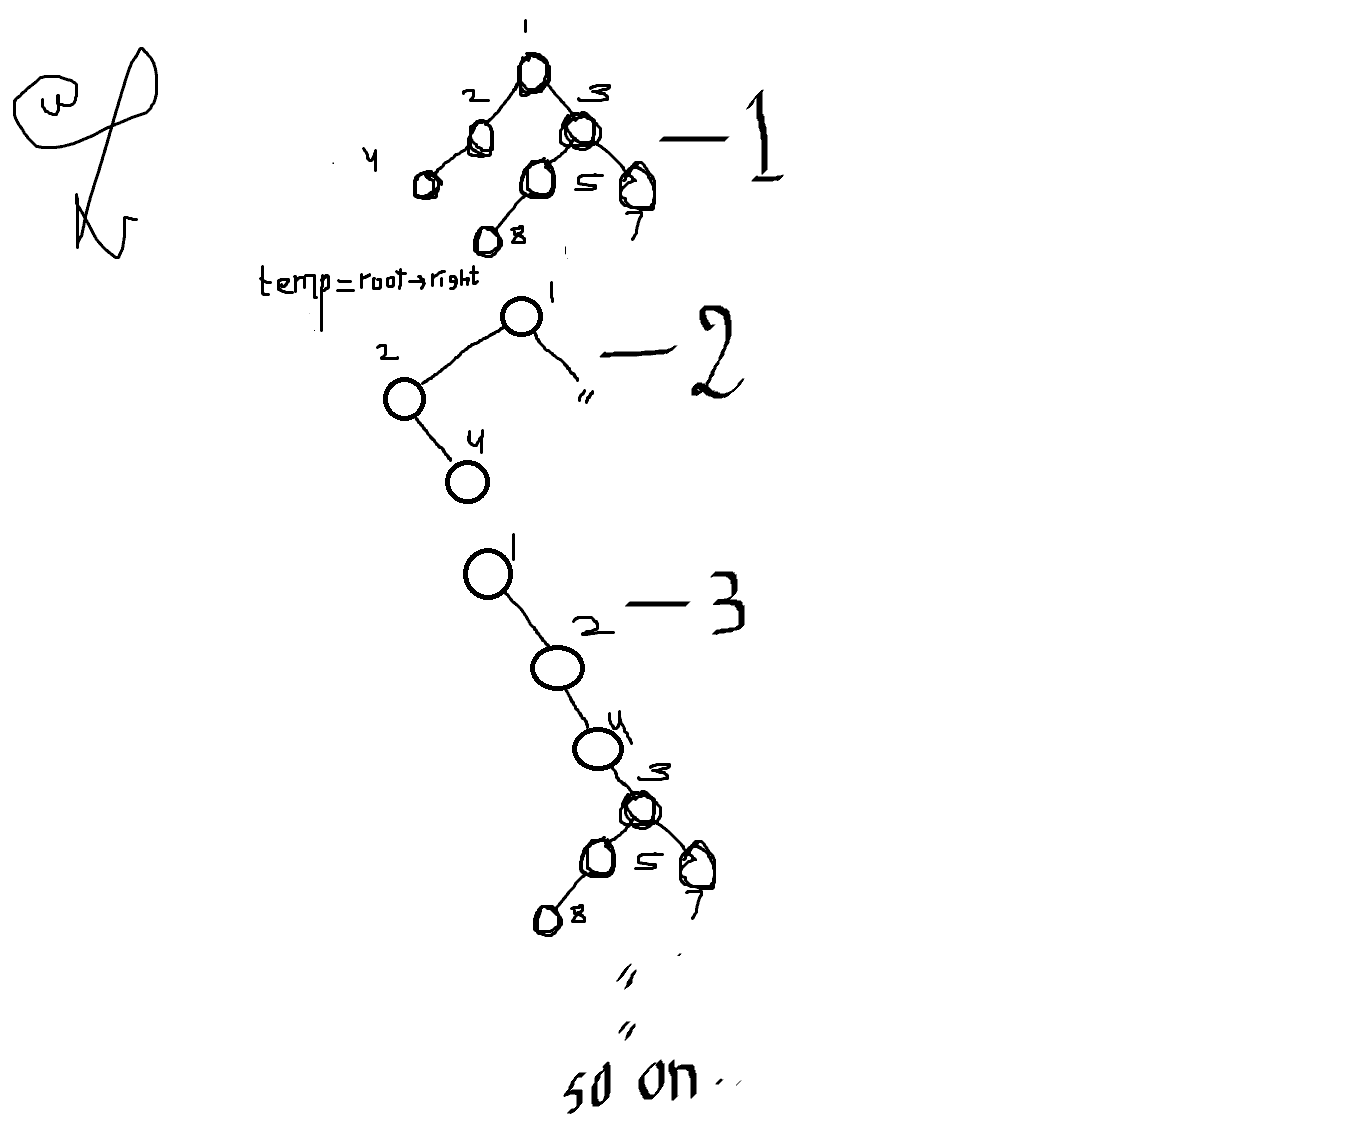 1
2 3 - 1
4 5
8 7
temp = root → right
1
2 - 2
"
4
1
2 - 3
4
3
5
8 7
"
"
so on ..